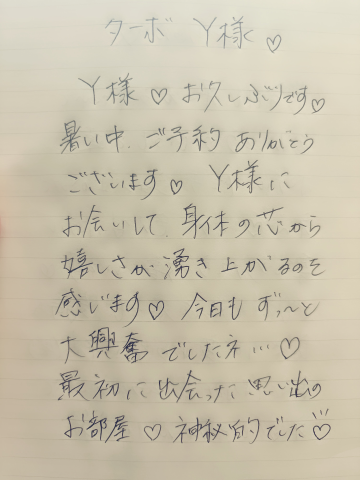 ターボ Y様♡
Y様♡お久しぶりです♡
暑い中、ご予約ありがとう
ございます♡ Y様に
お会いして、身体の芯から
嬉しさが湧き上がるのを
感じます♡ 今日もずっ〜と
大興奮でしたネ…♡
最初に出会った思い出の
お部屋♡神秘的でした♡